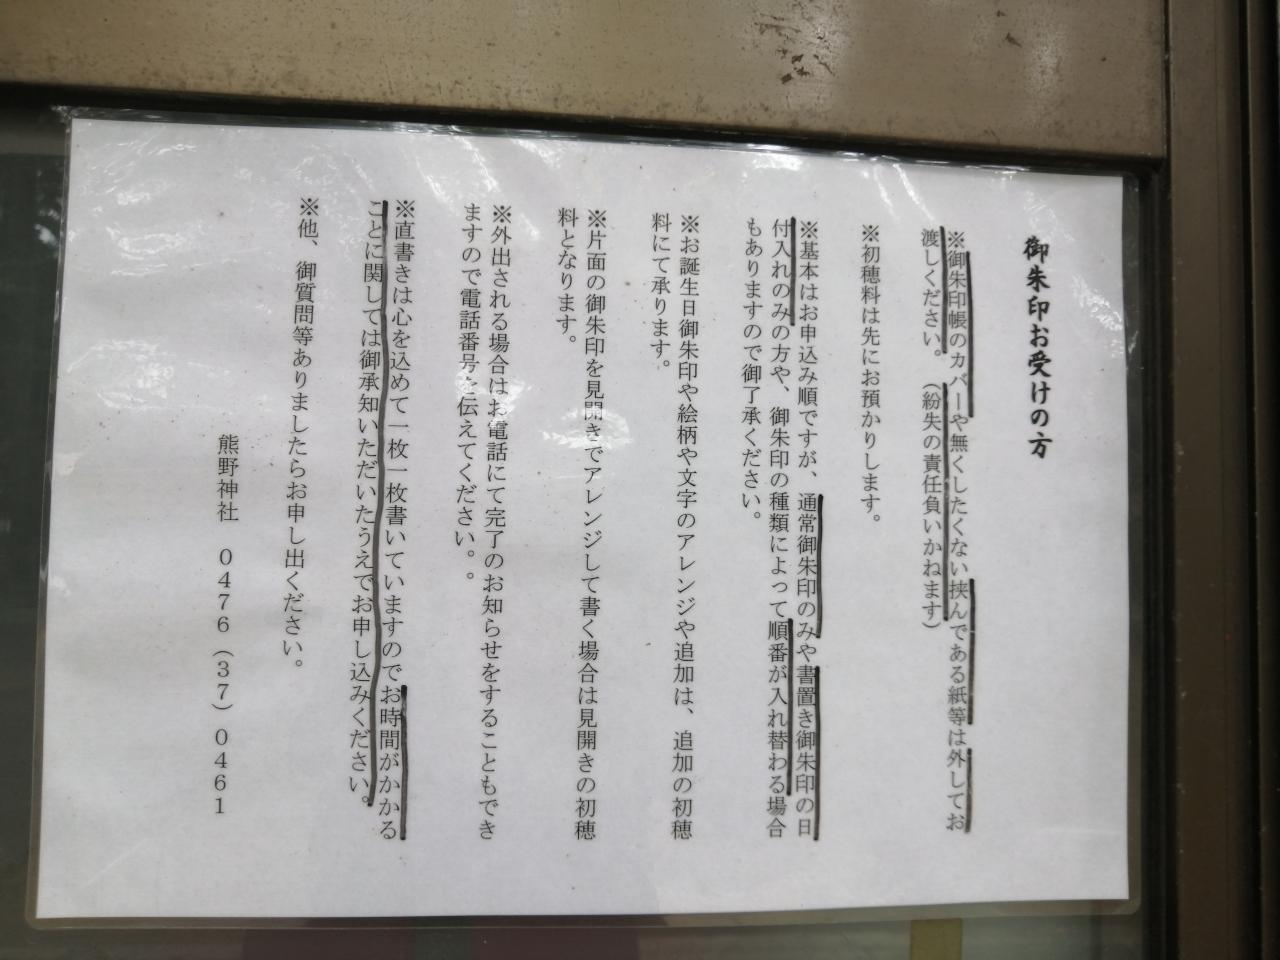 御朱印お受けの方
※御朱印帳のカバーや無くしたくない挟んである紙等は外してお
渡しください。（紛失の責任負いかねます）
※初穂料は先にお預かりします。
※基本はお申込み順ですが、通常御朱印のみや書置き御朱印の日
付入れのみの方や、御朱印の種類によって順番が入れ替わる場合
もありますので御了承ください。
※お誕生日御朱印や絵柄や文字のアレンジや追加は、追加の初穂
料にて承ります。
※片面の御朱印を見開きでアレンジして書く場合は見開きの初穂
料となります。
※外出される場合はお電話にて完了のお知らせをすることもでき
ますので電話番号を伝えてください。。
※直書きは心を込めて一枚一枚書いていますのでお時間がかかる
ことに関しては御承知いただいたうえでお申し込みください。
※他、御質問等ありましたらお申し出ください。
熊野神社　０４７６（３７）０４６１